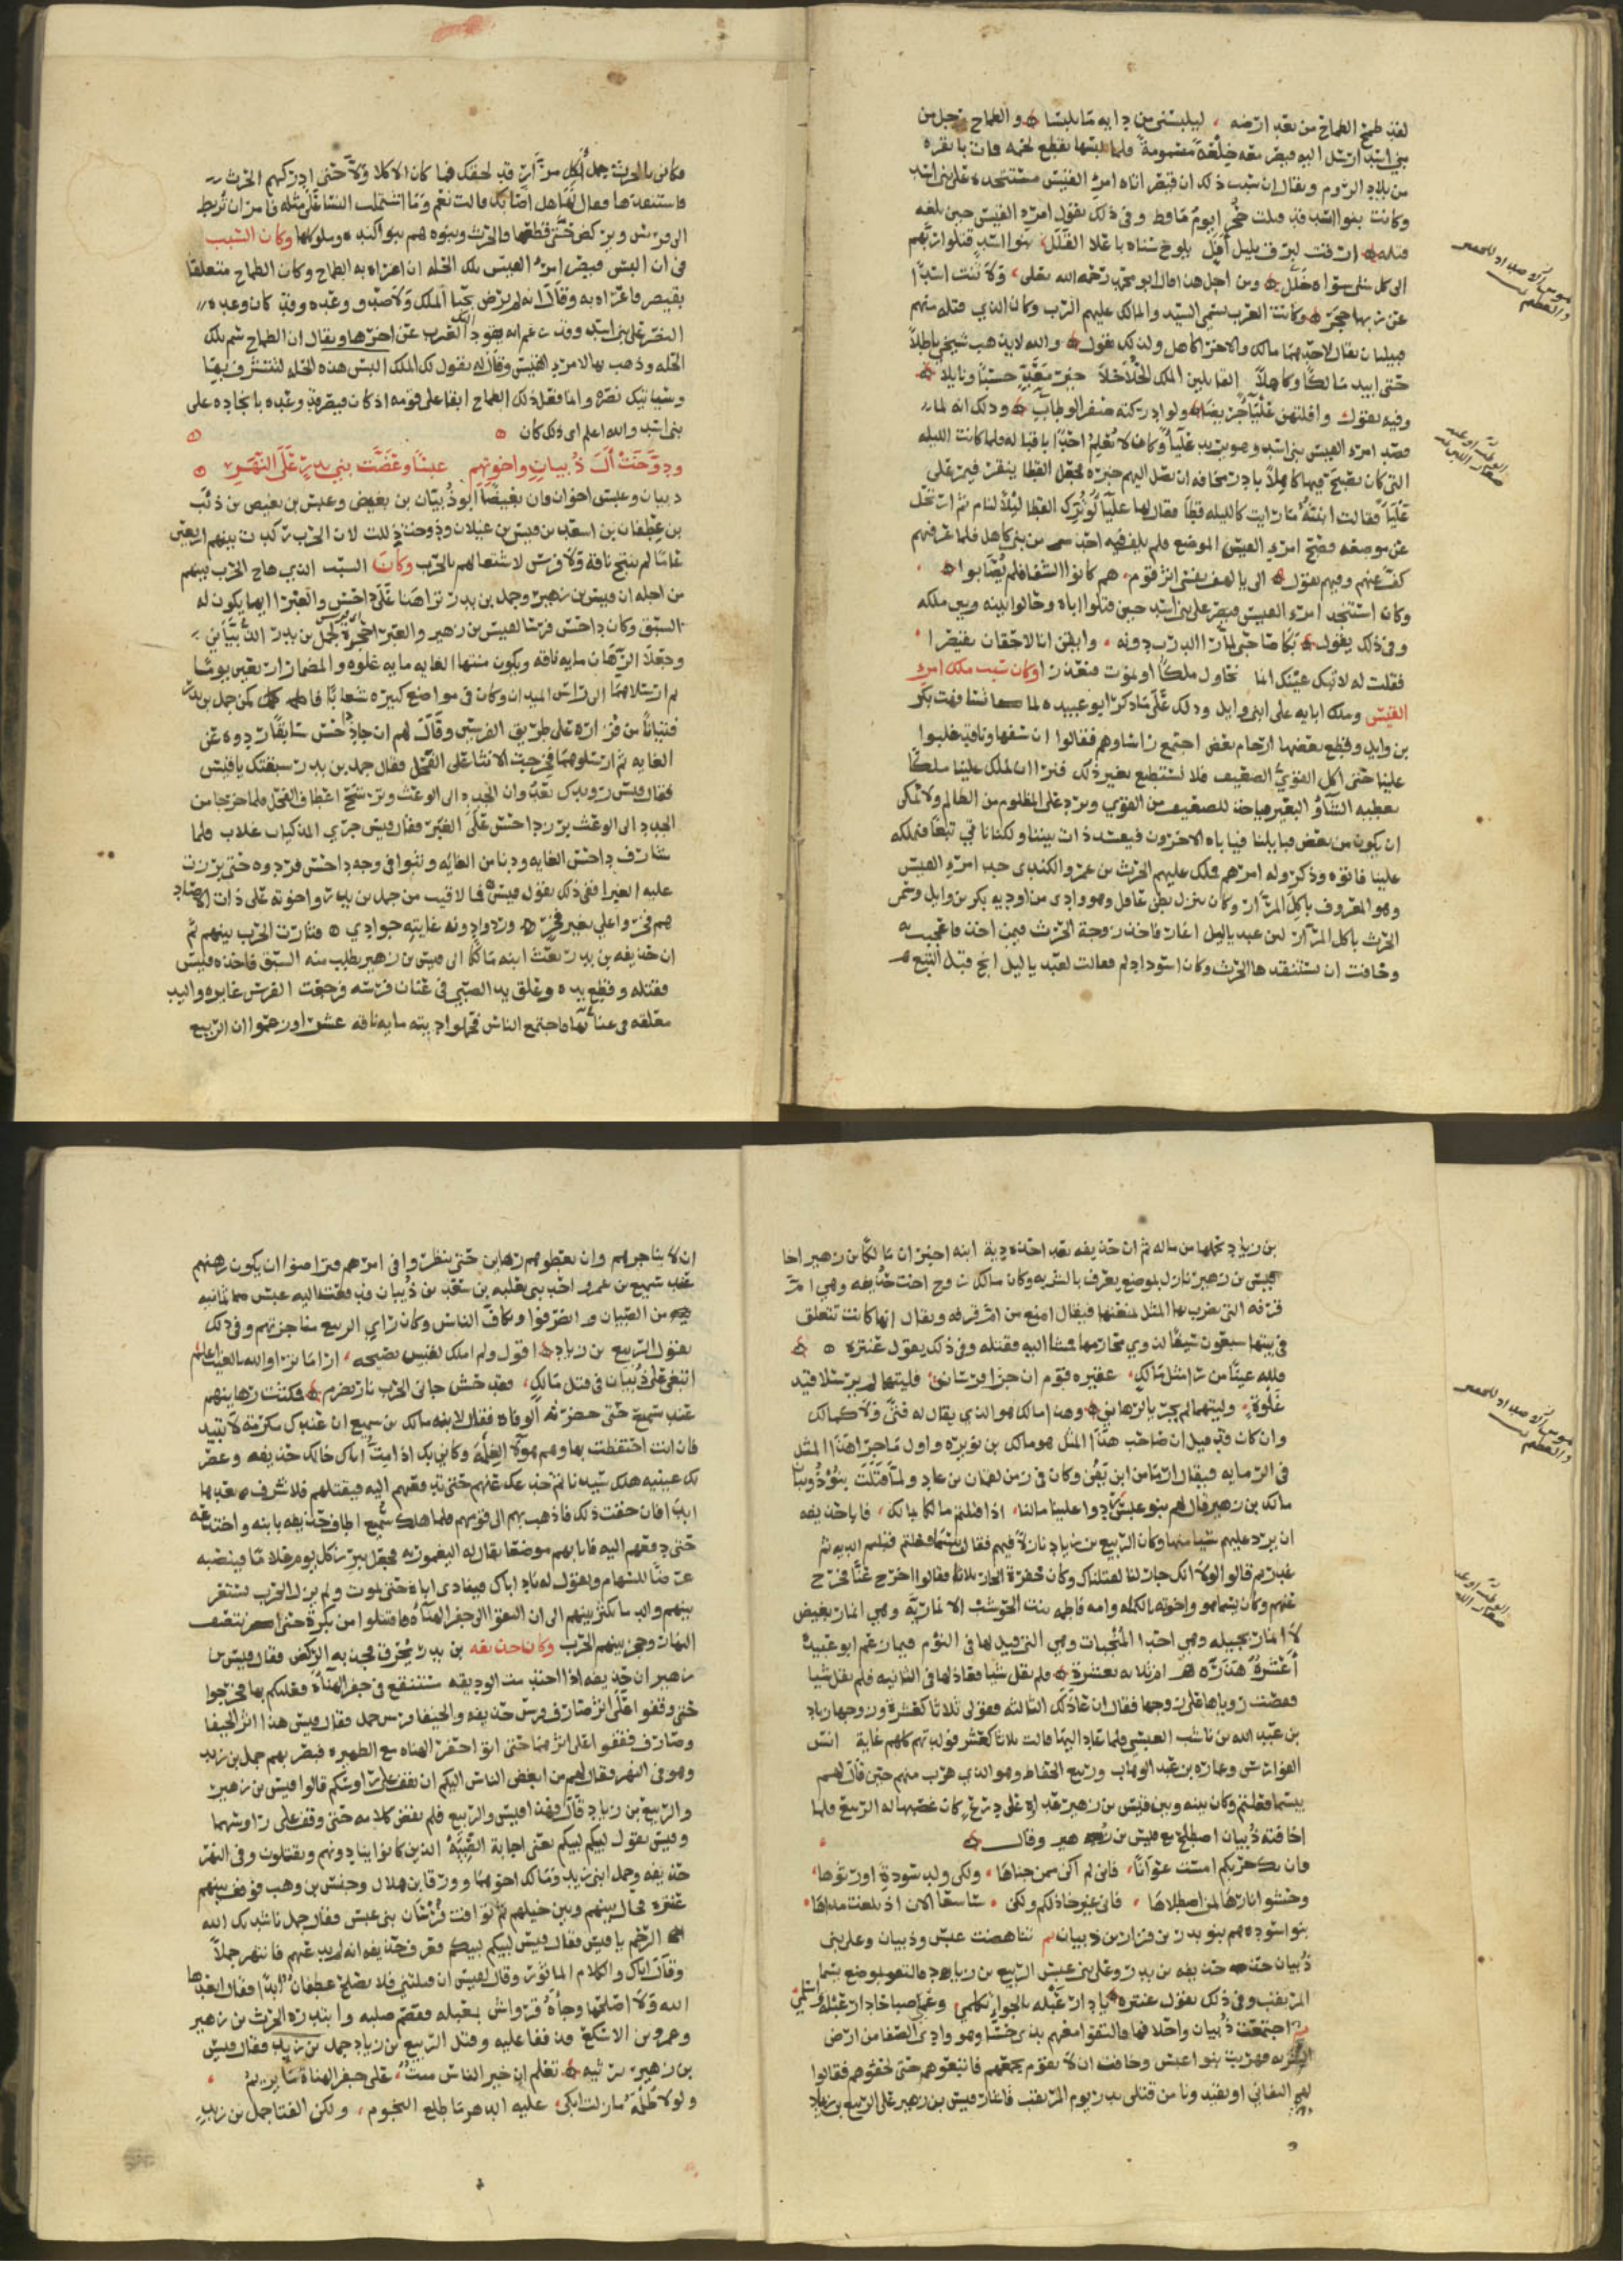 لقد طمح الطماح من بعد ارضه ليلبسني من دايه ما تلبسا والطماح رجل من
بني اسد ارسل اليه قيصر معه خلعة مسمومة فلما لبسها تقطع لحمه فمات بانقره
من بلاد الروم ويقال ان سبب ذلك ان قيصر اتاه امرء القيس مستنجده على بني اسد
وكانت بنوا اسد قد قتلت حجر ابوه وفي ذلك يقول امرء القيس حين بلغه
قتله ارقت لبرق بليل اهل يلوح سناه باعلا القلل بنوا اسد قتلوا ربهم
الى كل شي سواه خلل ومن اجل هذا قال ابو محمد رحمه الله تعالى ولا ثنت اسدا
عن ربها حجر وكانت العرب تسمي السيد والمالك عليهم الرب وكان الذي قتله منهم
قبيلتان يقال لاحدهما مالك والاخر كاهل ولذلك يقول والله لا يذهب شيخي باطلا
حتى ابيد مالكا وكاهلا القاتلين الملك الحلاحلا خير معد حسبا ونايلا
وفيه يقول وافلتهن علبا جريضا ولو ادركنه صفر الوطاب وذلك انه لما
قصد امرء القيس بني اسد وهو يريد علبا وكاهلا
التي كان يصبح فيها كاهلا بادر مخافه ان تصل اليهم خبره فجعل القطا ينفر فيمر على
علبا فقالت ابنته ما رايت كالليله قطا فقال لها علبا لو ترك القطا ليلا لنام ثم ارتحل
عن موضعه فصبح امرء القيس الموضع فلم يلق فيه احد من بني كاهل فلما عرفهم
كف عنهم وفيهم يقول الى يا لهف نفسي اثر قوم هم كانوا الشفا فلم يصابوا
وكان استنجد امرء القيس قيصر على بني اسد حين قتلوا اباه وحالوا بينه وبين ملكه
وفي ذلك يقول بكا صاحبي لما راى الدرب دونه وايقن انا لاحقان بقيصرا
فقلت له لا تبك عينك انما نحاول ملكا او نموت فنعذرا وكان سبب ملك امرء
القيس وملك ابايه على ابني وايل وذلك على ما ذكر ابو عبيده لما تسافهت بكر
بن وايل وقطع بعضها ارحام بعض اجتمع رؤساوهم فقالوا ان سفهاونا قد غلبوا
علينا حتى اكل القوي الضعيف فلا نستطيع تغيير ذلك فنرا ان نملك علينا ملكا
نعطيه الشاة والبعير فياخذ للضعيف من القوي ويرد على المظلوم من الظالم ولا يمكن
ان يكون من بعض قبايلنا فيا باه الاخرون فيفسد ذات بيننا ولكنا ناتي تبعا فنملكه
علينا فاتوه وذكروله امرهم فملك عليهم الحرث بن عمرو الكندي جد امرء القيس
وهو المعروف باكل المرار وكان ينزل بطن عاقل وهو وادي من اوديه بكر بن وايل وسمي
الحرث باكل المرار لان عبد ياليل اغار فاخذ زوجة الحرث فيمن اخذ فاعجبت به
وخافت ان يستنقدها الحرث وكان اسود ادلم فقالت لعبد ياليل انج قبل
فكاني بالحرث جمل اكل مرار قد لحقك فما كان الا كلا ولا حتى ادركهم الحرث
فاستنقذها فقال لها هل اصابك قالت نعم وما اشتملت النسا على مثله فامر ان تربط
الى فرسين ويركض حتى قطعها والحرث وبنوه هم بنوا كنده وملوكها وكان السبب
في ان البس قيصر امرء القيس تلك الحله ان اغراه به الطماح وكان الطماح متعلقا
بقيصر فاغراه به وقال انه لم يرض بحيا الملك ولا صدق وعده وقد كان وعده
النصر على بني اسد وقد زعم انه يقود العرب عن اخرها ويقال ان الطماح سم تلك
الحله وذهب بها لامرء القيس وقال له يقول لك الملك البس هذه الحله لتتشرف بها
وسياتيك نصره وانما فعل ذلك الطماح ابقا على قومه اذ كان قيصر قد وعده بانجاده على
بني اسد والله اعلم اي ذلك كان
ودوخت آل ذبيان واخوتهم عبسا وغصت بني بدر على النهر
ذبيان وعبس اخوان وان بغيضا ابو ذبيان بن بغيض وعبس بن بغيض بن ريث
بن غطفان بن سعد بن قيس بن عيلان ودوخت ذللت لان الحرب ركدت بينهم اربعين
عاما لم تنتج ناقة ولا فرس لاشتغالهم بالحرب وكان السبب الذي هاج الحرب بينهم
من اجله ان قيس بن زهير وحمل بن بدر تراهنا على داحس والغبرا ايهما يكون له
السبق وكان داحس فرسا لقيس بن زهير والغبرا حجرة لحمل بن بدر الذبياني
وجعلا الرهان مايه ناقه ويكون منتها الغايه مايه غلوه والمضمار اربعين يوما
ثم ارسلاهما الى راس الميدان وكان في مواضع كثيره شعابا فاكمن حمل بن بدر
فتيانا من فزاره على طريق الفرسين وقال لهم ان جا داحس سابقا ردوه عن
الغايه ثم ارسلوهما فخرجت الانثا على الفحل فقال حمل بن بدر سبقتك يا قيس
فقال قيس رويدك بعد وان الجدد الى الوعث وترشح اعطاف الفحل فلما خرجا من
الجدد الى الوعث برز داحس على الغبرا فقال قيس جري المذكيات غلاب فلما
شارف داحس الغايه ودنا من الغايه وثبوا في وجه داحس فردوه حتى برزت
عليه الغبرا ففي ذلك يقول قيس فما لاقيت من حمل بن بدر واخوته على ذات الاصاد
هم فخروا علي بغير فخر وردوا دونه غايته جوادي فثارت الحرب بينهم ثم
ان حذيفه بن بدر بعث ابنه مالكا الى قيس بن زهير يطلب منه السبق فاخذه قيس
فقتله وقطع يده وعلق يد الصبي في عنان فرسه فرجعت الفرس غايره واليد
معلقه في عنانها فاجتمع الناس فحملوا ديته مايه ناقه عشرا وزعموا ان الربيع
بن زياد حملها من ماله ثم ان حذيفه بعد اخذه دية ابنه اخبر ان مالك بن زهير اخا
قيس بن زهير نازل بموضع يعرف بالشربه وكان مالك زوج اخت حذيفه وهي ام
قرفه التي يضرب بها المثل لمنعتها فيقال امنع من ام قرفه ويقال انها كانت تتعلق
في بيتها سبعون سيفا لذوي محارمها فمشا اليه فقتله وفي ذلك يقول عنتره
فلله عينا من راى مثل مالك عقيرة قوم ان جرا فرسان فليتهما لم يرسلا قيد
غلوة وليتهما لم يجريا لرهان وهذا مالك هو الذي يقال له فتى ولا كمالك
وان كان قد قيل ان صاحب هذا المثل هو مالك بن نويره واول ما جرا هذا المثل
مالك بن زهير قال لهم بنو عبس ردوا علينا مالنا اذا قتلتم مالكا بمالك فابا حذيفه
ان يرد عليهم شيا منها وكان الربيع بن زياد نازلا فيهم فقال بيسما فعلتم
غدرتم قالوا لولا انك جار لنا لقتلناك وكان خفرة الجار ثلاثا فقالوا اخرج عنا فخرج
عنهم وكان يسما هو واخوته الكمله وامه فاطمه بنت الخرشب الانمارية وهي انمار بغيض
لا انمار بجيله وهي احدا المنجبات وهي التي قيل لها في النوم فيما زعم ابو عبيدة
أعشرة هدرة ام ثلاثه كعشرة فلم تقل شيا فعاد لها في الثانيه فلم تقل شيا
فقصت روياها على زوجها فقال ان عاد لك الثالثه فقولي ثلاثا كعشرة وزوجها زياد
بن عبد الله بن ناشب العبسي فلما عاد اليها قالت ثلاثا كعشر فولدتهم كلهم غاية انس
الفوارس وعماره بن عبد الوهاب وربيع الحفاظ وهو الذي هرب منهم حين قال لهم
بيسما فعلتم وكان بينه وبين قيس بن زهير عداوة على درع كان غصبها له الربيع فلما
اخافته ذبيان اصطلح مع قيس بن زهير وقال
فان تك حربكم امست عوانا فاني لم اكن ممن جناها ولكن ولد سودة ارثوها
وحشوا نارها لمن اصطلاها فاني غير خاذلكم ولكن ساسعا الان اذ بلغت مداها
بنو اسوده هم بنو بدر بن فزاره بن ذبيان ثم تناهضت عبس وذبيان وعلى بني
ذبيان حذيفه بن بدر وعلى بني عبس الربيع بن زياد فالتقو بموضع يسما
المريقب وفي ذلك يقول عنتره يا دار عبله بالجواء تكلمي وعمي صباحا دار عبله واسلمي
ثم اجتمعت ذبيان واحلافها فالتقوا معهم بذي حسا وهو وادي الصفا من ارض
الشربه فهربت بنو اعبس وخافت ان لا تقوم بجمعهم فاتبعوهم حتى لحقوهم فقالوا
التفاني او تقيدونا من قتلى بدر يوم المريقب فاشار قيس بن زهير على الربيع بن زياد
ان لا يناجزهم وان يعطوهم رهاين حتى ينظروا في امرهم فتراضوا ان يكون رهنهم
عند سبيع بن عمرو احد بني ثعلبه بن سعد بن ذبيان فدفعت اليه عبس ثمانيه
من الصبيان وانصرفوا وتكاف الناس وكان راي الربيع مناجزتهم وفي ذلك
يقول الربيع بن زياد اقول ولم املك لقيس نصيحه ارا ما يرا والله بالغيب اعلم
اتبقي على ذبيان في قتل مالك فقد حش جاني الحرب نار تضرم فمكثت رهاينهم
عند سبيع حتى حضرته الوفاه فقال لابنه مالك بن سبيع ان عندك مكرمة لا تبيد
فان انت احتفظت بها وهم هولا الغلمة وكاني بك اذا مت اتاك خالك حذيفه وعصر
لك عينيه هلك سيدنا ثم خدعك عنهم حتى تدفعهم اليه فيقتلهم فلا تشرف بعدها
ابدا فان خفت ذلك فاذهب بهم الى قومهم فلما هلك سبيع اطاف حذيفه بابنه واختدعه
حتى دفعهم اليه فاتا بهم موضعا يقال له اليعمريه فجعل يبرز كل يوم غلاما فينصبه
غرضا للسهام ويقول له ناد اباك فينادي اباه حتى يموت ولم يزل الحرب تستعر
بينهم والدما تكثر بينهم الى ان التقوا الى جفر الهباه فاقتتلوا من بكرة حتى انتصف
النهار وحجز بينهم الحرب وكان حذيفه بن بدر يحرق فخذيه الركض فقال قيس بن
زهير ان حذيفه اذا احتدمت الوديقه مستنقع في جفر الهباه فعليكم بها فخرجوا
حتى وقفوا على اثر صارف فرس حذيفه والحنفا فرس حمل فقال قيس هذا اثر الحنفا
وصارف فقفوا على اثرهما حتى اتوا جفر الهباه مع الظهيره فبصر بهم حمل بن بدر
وهو في النهر فقال لهم من ابغض الناس اليكم ان يقف على روسكم قالوا قيس بن زهير
والربيع بن زياد قال فهذا قيس والربيع فلم ينقض كلامه حتى وقف على روسهما
وقيس يقول لبيكم لبيكم يعني اجابة الصبية الذين كانوا ينادونهم ويقتلون وفي النهر
حذيفه وحمل ابني بدر ومالك اخوهما وورقا بن هلال وحنش بن وهب فوقف بينهم
عنتره فحال بينهم وبين خيلهم ثم توافت فرسان بني عبس فقال حمل ناشدتك الله
الرحم يا قيس فقال قيس لبيكم لبيكم فعرف حذيفه انه لن يدعهم فانتهر حملا
وقال اياك والكلام الماثور وقال لقيس ان قتلتني فلا تصلح غطفان ابدا فقال ابعدها
الله ولا اصلحها وجاه قرواش بمعبله فقصم صلبه وابتدره الحرث بن زهير
وعمرو بن الاسلع فدففا عليه وقتل الربيع بن زياد حمل بن بدر فقال قيس
بن زهير يرثيه تعلم ان خير الناس ميت على جفر الهباة ما يريم
ولولا ظلمه ما زلت ابكي عليه الدهر ما طلع النجوم ولكن الفتا حمل بن بدر